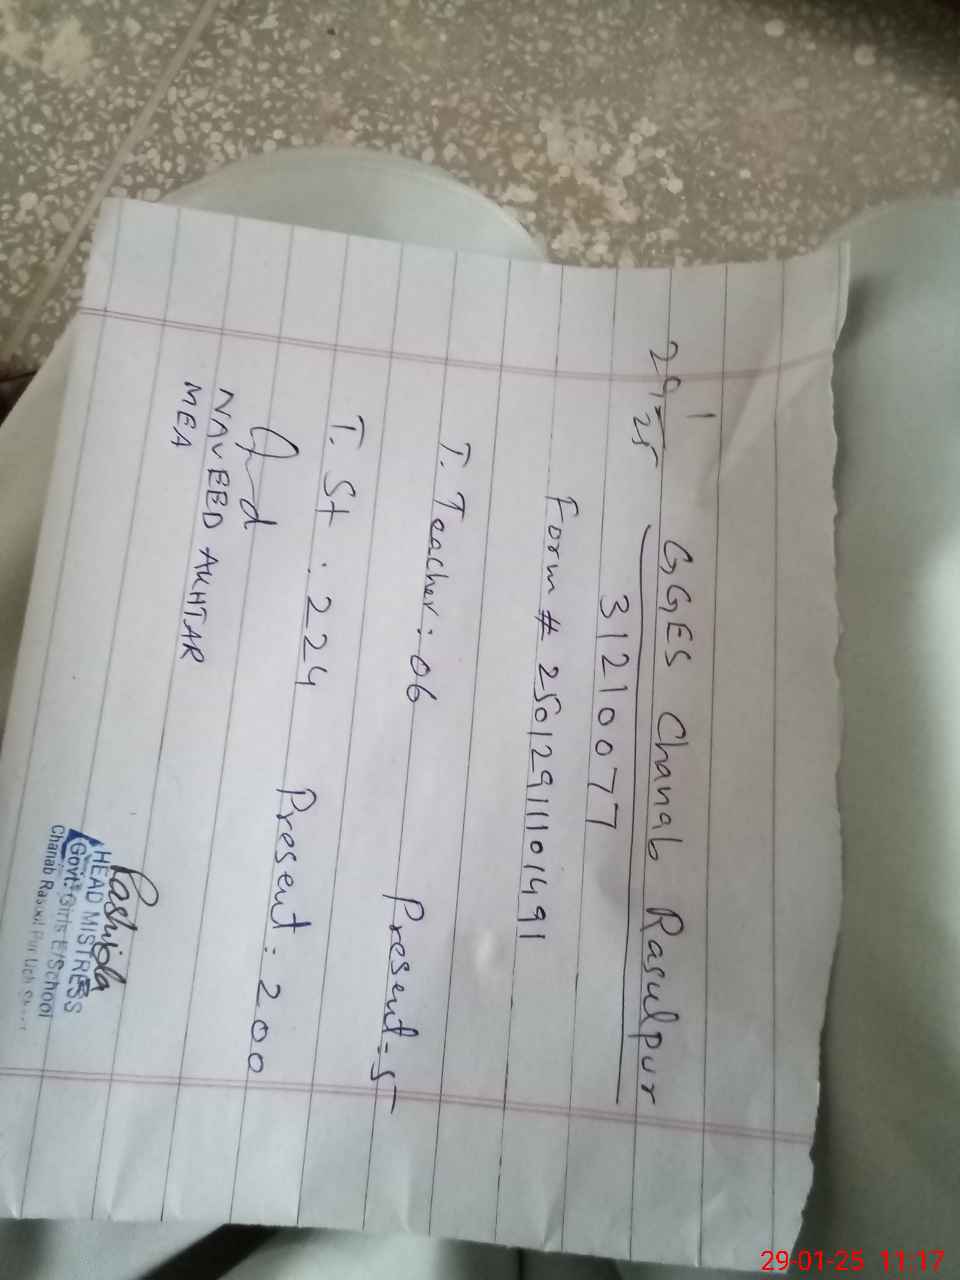 29-1-25
GGES Chanab Rasulpur
31210077
Form # 25012911101491
T. Teacher: 06 Present = 5
T. St : 224 Present: 200
NAVEED AKHTAR
MEA
Rashida
HEAD MISTRESS
Govt: Girls E/School
Chanab Rasul Pur Uch
29-01-25 11:17